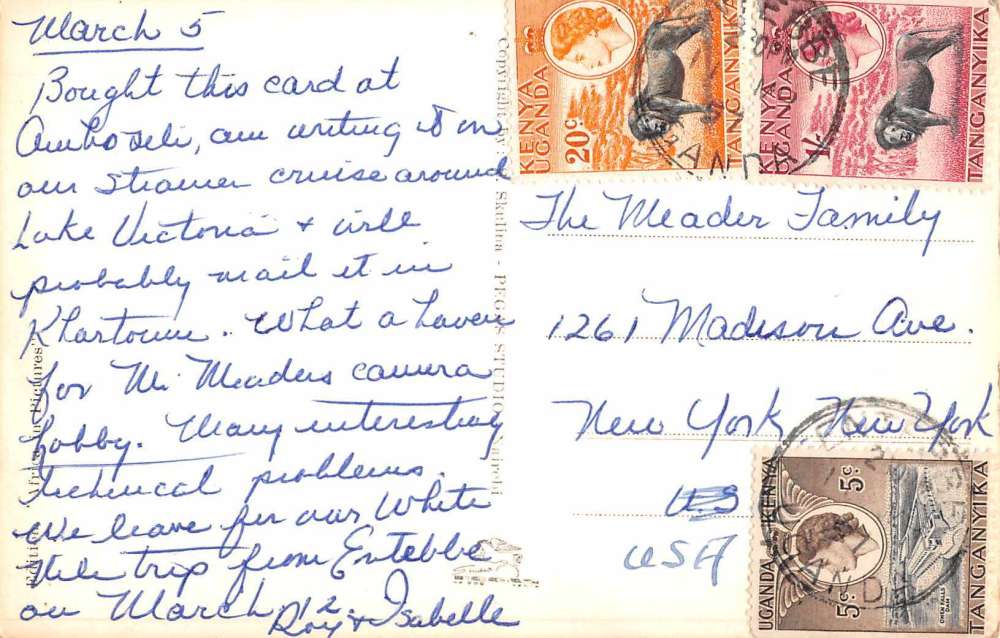 March 5
Bought this card at
Amboseli, am writing it on
our steamer cruise around
Lake Victoria + will
probably mail it in
Khartoum. What a haven
for Mr. Meaders camera
hobby. Many interesting
technical problems.
We leave for our White
Nile trip from Entebbe
on March 12.
Roy + Isabelle
Copyright by: Skulina - PEGAS STUDIO, Nairobi
The Meader Family
1261 Madison Ave.
New York, New York
US
USA
KENYA
UGANDA
TANGANYIKA
20c
KENYA
UGANDA
TANGANYIKA
1/-
UGANDA KENYA
TANGANYIKA
5c.
5c.
OWEN FALLS
DAM